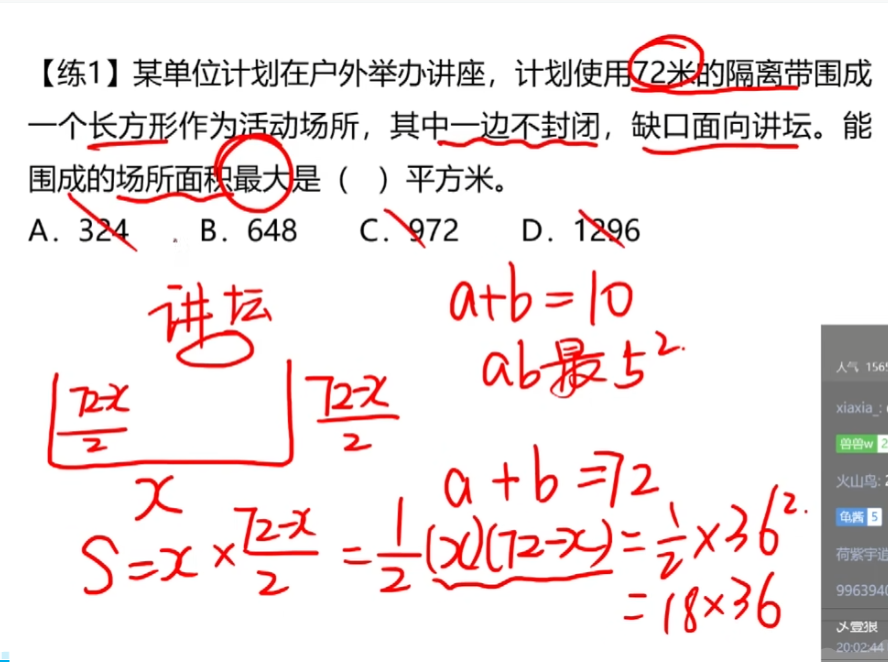 【练1】某单位计划在户外举办讲座，计划使用72米的隔离带围成
一个长方形作为活动场所，其中一边不封闭，缺口面向讲坛。能
围成的场所面积最大是（ ）平方米。
A. 324 B. 648 C. 972 D. 1296
讲坛
a+b=10
ab最 5²
72-x/2
72-x/2
x
a+b=72
S=x×72-x/2=1/2(x)(72-x)=1/2×36²
=18×36
人气 156
xiaxia_:
兽兽w 2
火山鸟:
龟酱 5
荷紫宇
996394
乄壹狼
20:02:44